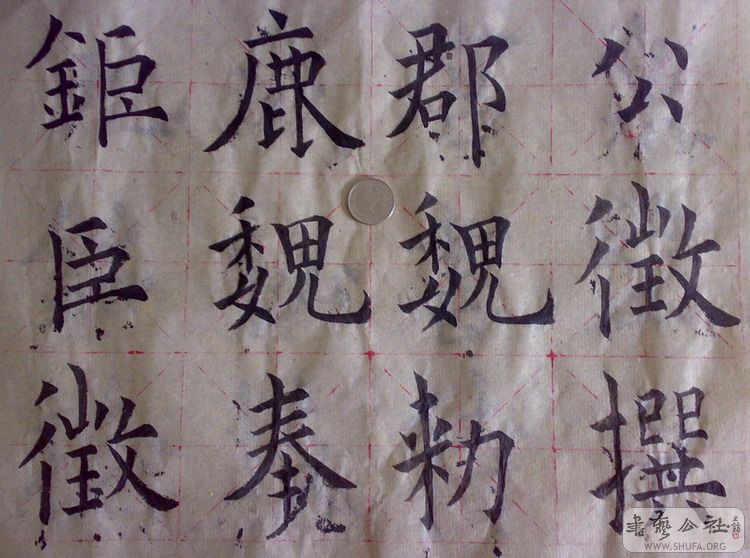 鉅鹿郡公
臣魏魏徵
徵奉勑撰
書藝公社
WWW.SHUFA.ORG